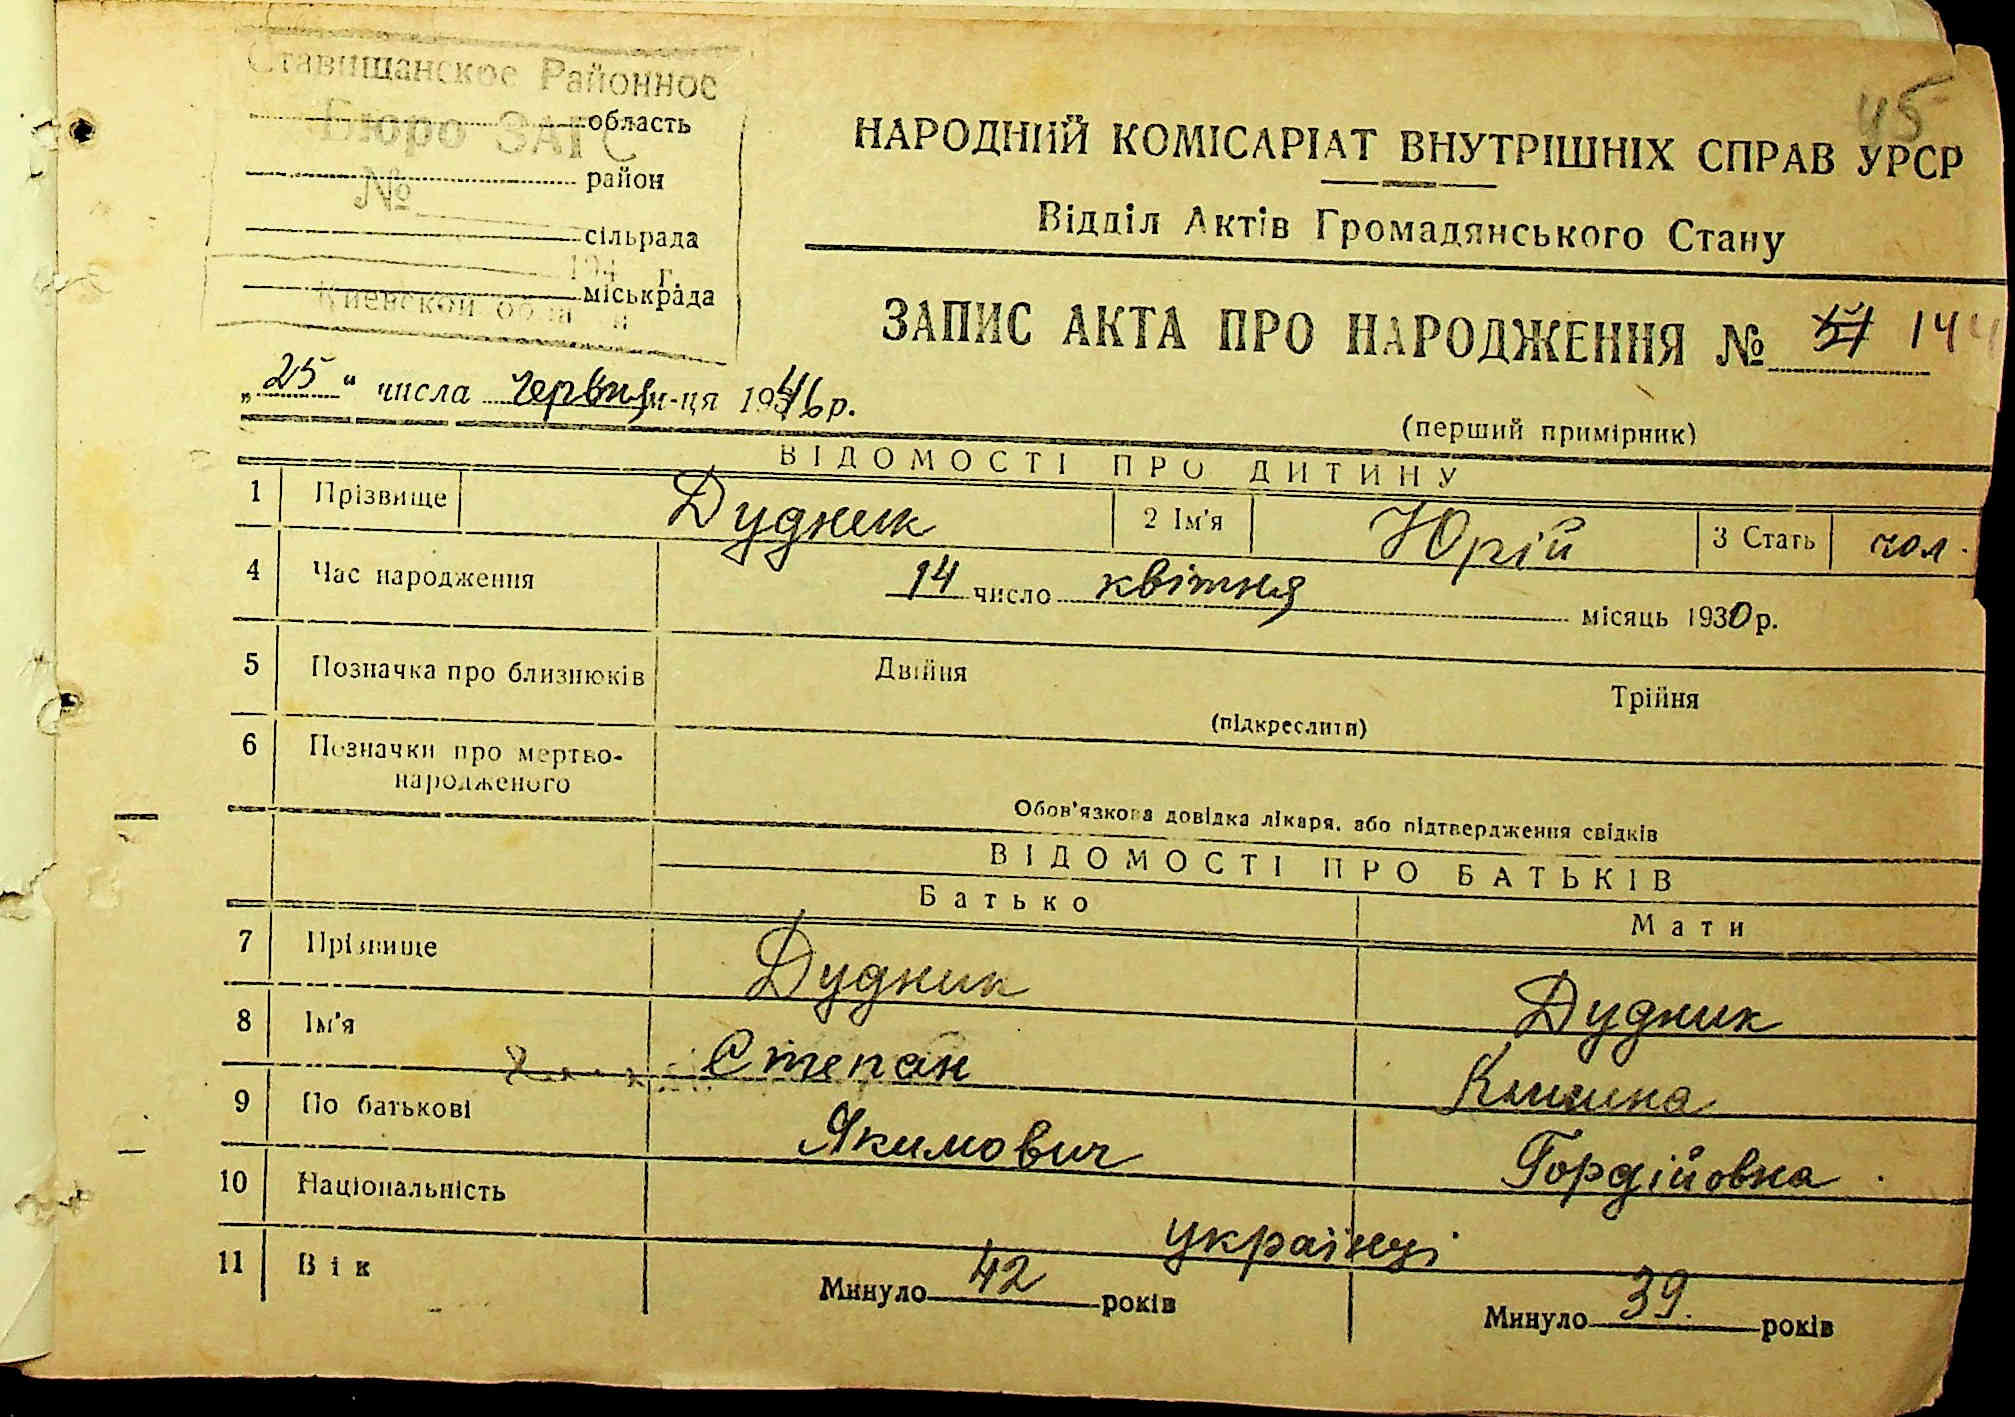 Ставищанское Районное
Бюро ЗАГС
область
№ район
сільрада
194 г.
міськрада
Киевской
45
НАРОДНИЙ КОМІСАРІАТ ВНУТРІШНІХ СПРАВ УРСР
Відділ Актів Громадянського Стану
ЗАПИС АКТА ПРО НАРОДЖЕННЯ № 144
„25“ числа червня м-ця 1946 р.
(перший примірник)
ВІДОМОСТІ ПРО ДИТИНУ
1 Прізвище Дудник 2 Ім'я Юрій 3 Стать чол.
4 Час народження 14 число квітня місяць 1930 р.
5 Позначка про близнюків Двійня Трійня
(підкреслити)
6 Позначки про мертво-
народженого
Обов'язкова довідка лікаря, або підтвердження свідків
ВІДОМОСТІ ПРО БАТЬКІВ
Батько Мати
7 Прізвище Дудник Дудник
8 Ім'я Степан
9 По батькові Якимович Гордійовна
10 Національність українці
11 Вік Минуло 42 років Минуло 39 років